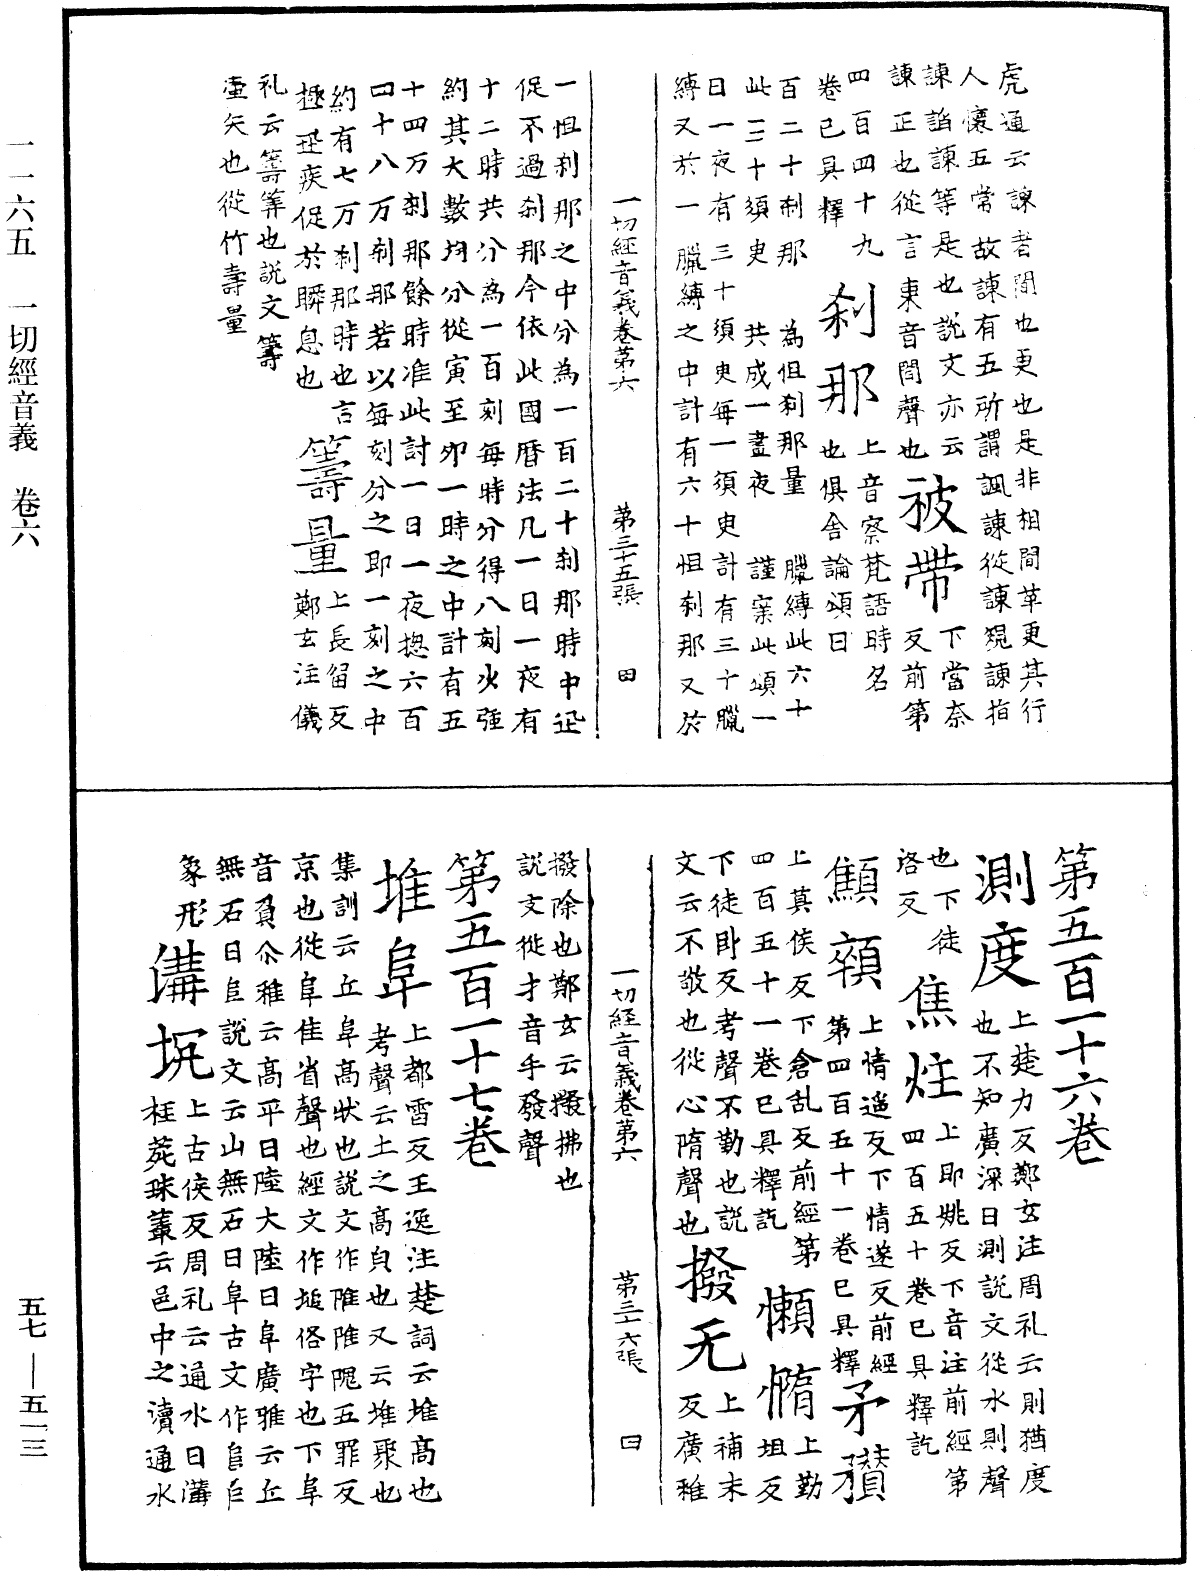 虎通云諫者間也更也是非相間革更其行
人懷五常故諫有五所謂諷諫從諫窺諫指
諫諂諫等是也說文亦云
諫正也從言柬音間聲也
被帶
下當奈
反前第
四百四十九
卷已具釋
剎那
上音察梵語時名
也俱舍論頌曰
百二十剎那　為怛剎那量　臘縛此六十
此三十須臾　共成一晝夜　謹案此頌一
日一夜有三十須臾每一須臾計有三十臘
縛又於一臘縛之中計有六十怛剎那又於
一切經音義卷第六　第三十五張　田
一怛剎那之中分為一百二十剎那時中迅
促不過剎那今依此國曆法凡一日一夜有
十二時共分為一百刻每時分得八刻火強
約其大數均分從寅至卯一時之中計有五
十四万剎那餘時准此討一日一夜揔六百
四十八万剎那若以每刻分之即一刻之中
約有七万剎那時也言
極迅疾促於瞬息也
籌量
上長留反
鄭玄注儀
礼云籌筭也說文籌
壷矢也從竹壽量
第五百一十六卷
測度
上楚力反鄭玄注周礼云則猶度
也不知廣深曰測說文從水則聲
也下徒
洛反
焦炷
上即姚反下音注前經第
四百五十卷已具釋訖
顦顇
上情遥反下情遂反前經
第四百五十一卷已具釋
矛䂎
上莫侯反下倉乱反前經第
四百五十一卷已具釋訖
懶惰
上勤
坦反
下徒卧反考聲不勤也說
文云不敬也從心隋聲也
撥无
上補末
反廣雅
一切經音義卷第六　第三十六張　田
撥除也鄭玄云撥拂也
說文從才音手發聲
第五百一十七卷
堆阜
上都雷反王逸注楚詞云堆高也
考聲云土之高皃也又云堆聚也
集訓云丘阜高状也說文作陮陮隗五罪反
京也從阜隹省聲也經文作塠俗字也下阜
音負尒雅云高平曰陸大陸曰阜廣雅云丘
無石曰𨸏說文云山無石曰阜古文作𨸏𨸏
象形
溝坑
上古侯反周礼云通水曰溝
桂菀珠叢云邑中之瀆通水
一一六五　一切經音義　卷六
五七—五一三